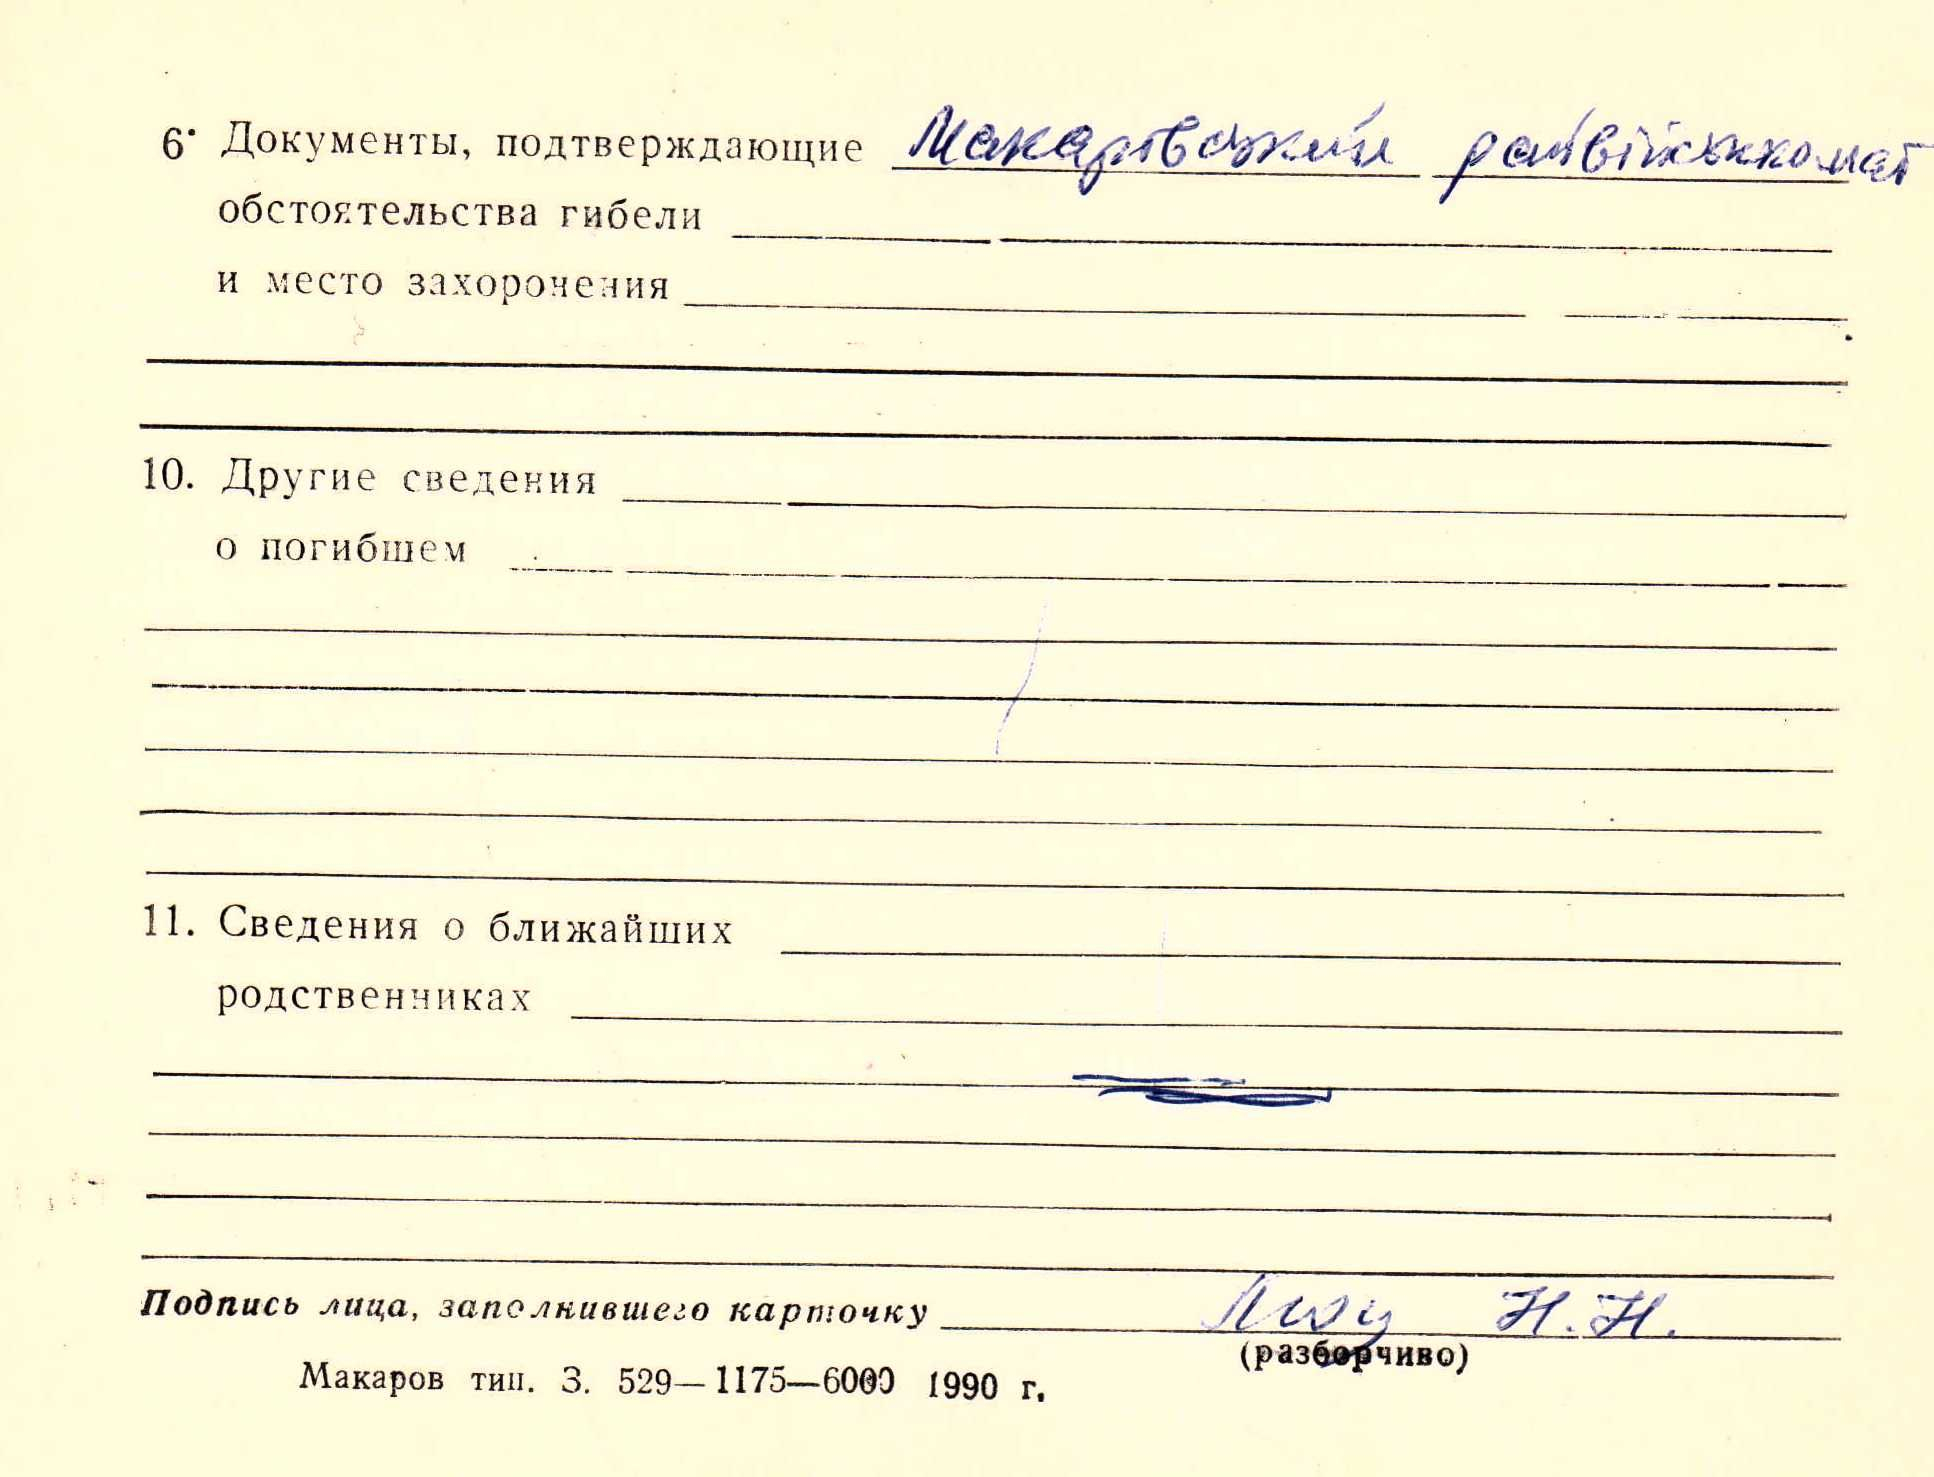 6. Документы, подтверждающие Макарівський райвійськкомат
обстоятельства гибели
и место захоронения
10. Другие сведения
о погибшем
11. Сведения о ближайших
родственниках
Подпись лица, заполнившего карточку Н.Н.
(разборчиво)
Макаров тип. З. 529—1175—6000 1990 г.